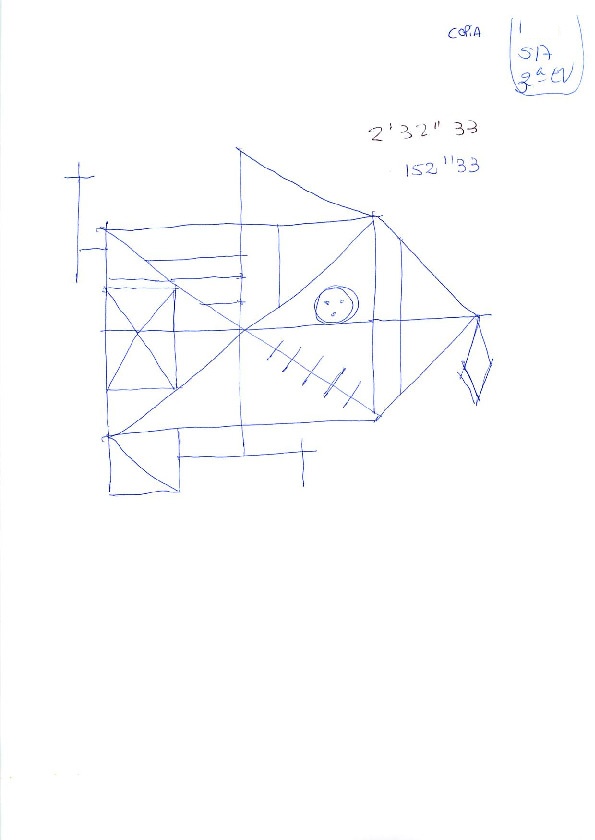 COPIA
1
517
3ª EV
2'32" 33
152"33